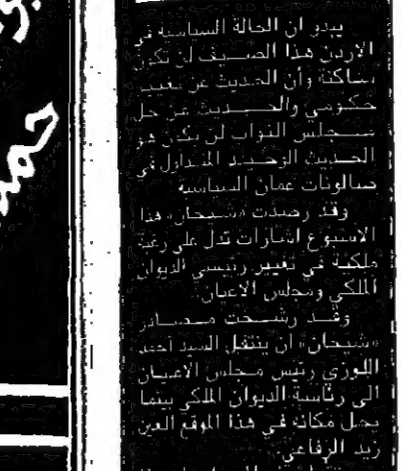 يبدو ان الحالة السياسية في
الاردن هذا الصيف لن تكون
ساكنة وأن الحديث عن تغيير
حكومي والحديث عن حل
مجلس النواب لن يكون هو
الحديث الوحيد المتداول في
صالونات عمان السياسية
وقد رصدت «شيحان» هذا
الاسبوع اشارات تدل على رغبة
ملكية في تغيير رئيسي الديوان
الملكي ومجلس الاعيان.
وقد رشحت مصادر
«شيحان» أن ينتقل السيد احمد
اللوزي رئيس مجلس الاعيان
الى رئاسة الديوان الملكي بينما
يحل مكانه في هذا الموقع العين
زيد الرفاعي.